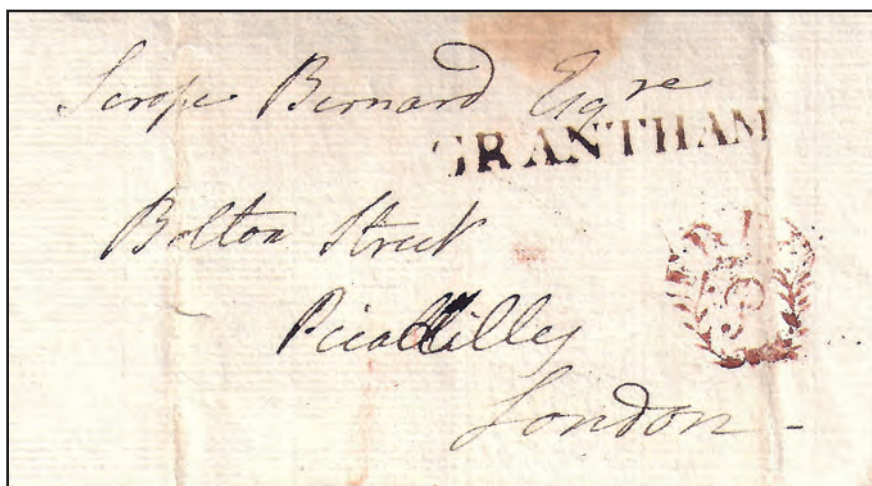 Scrope Bernard Esqre
GRANTHAM
Bolton Street
Picaddilley
London -